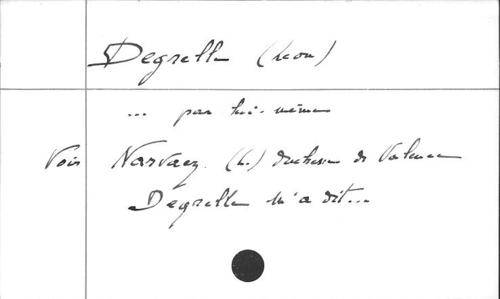 Degrelle (Léon)
... par lui-même
Voir Narvaez. (L.) duchesse de Valence
Degrelle m'a dit...